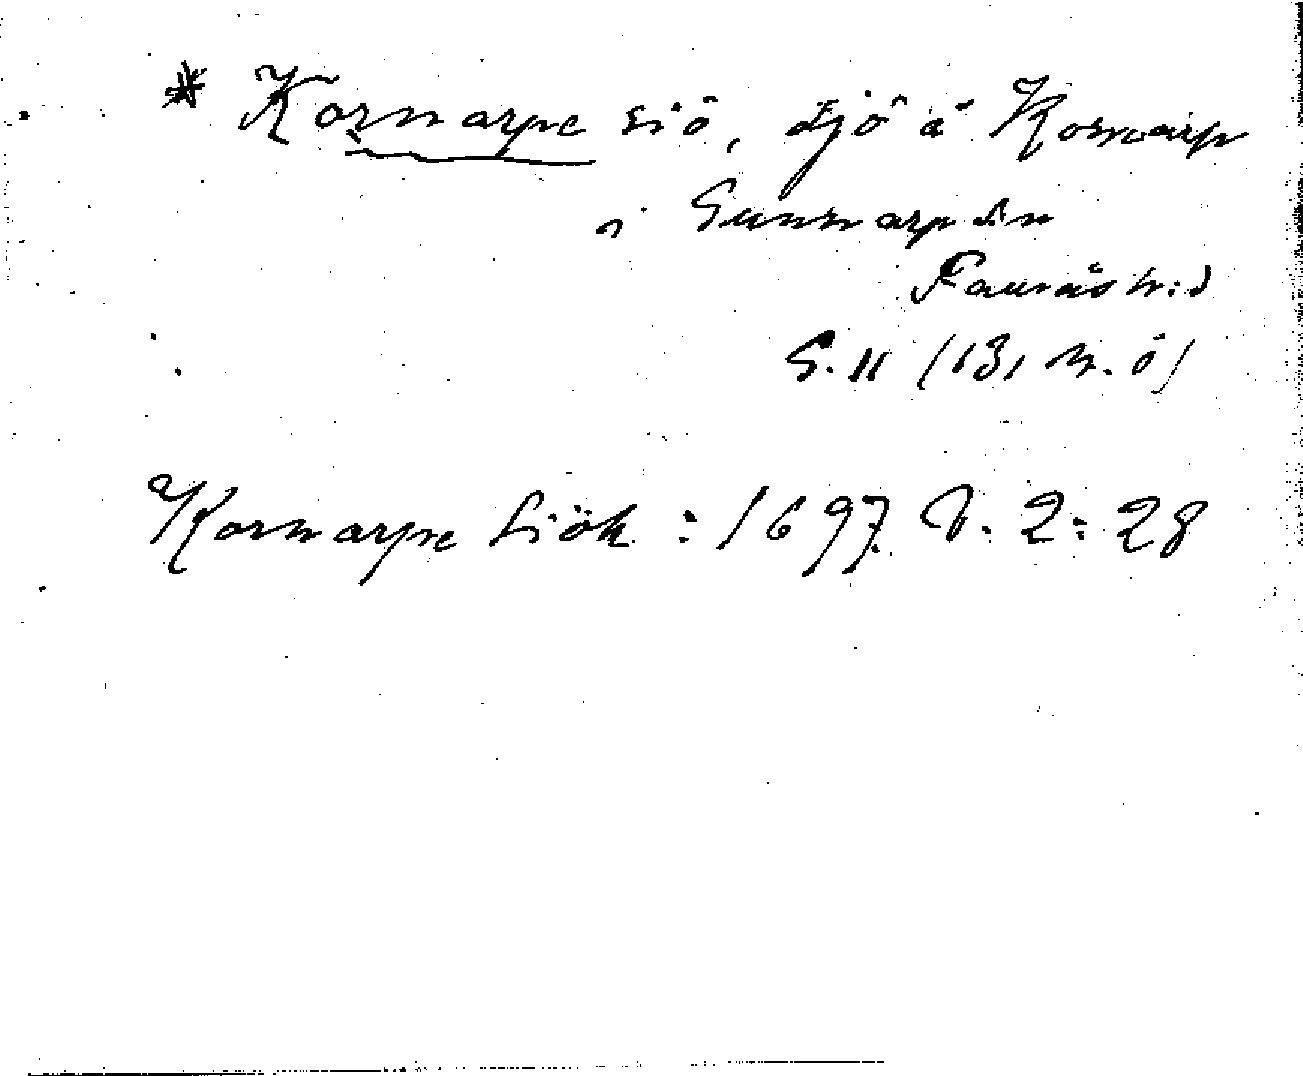 * Kornarpe siö, sjö å Kornarp
i Gunnarp sn
Faurås h:d
G. 11 (131 n. ö)
Kornarpe Siöh : 1697. V. 2: 28